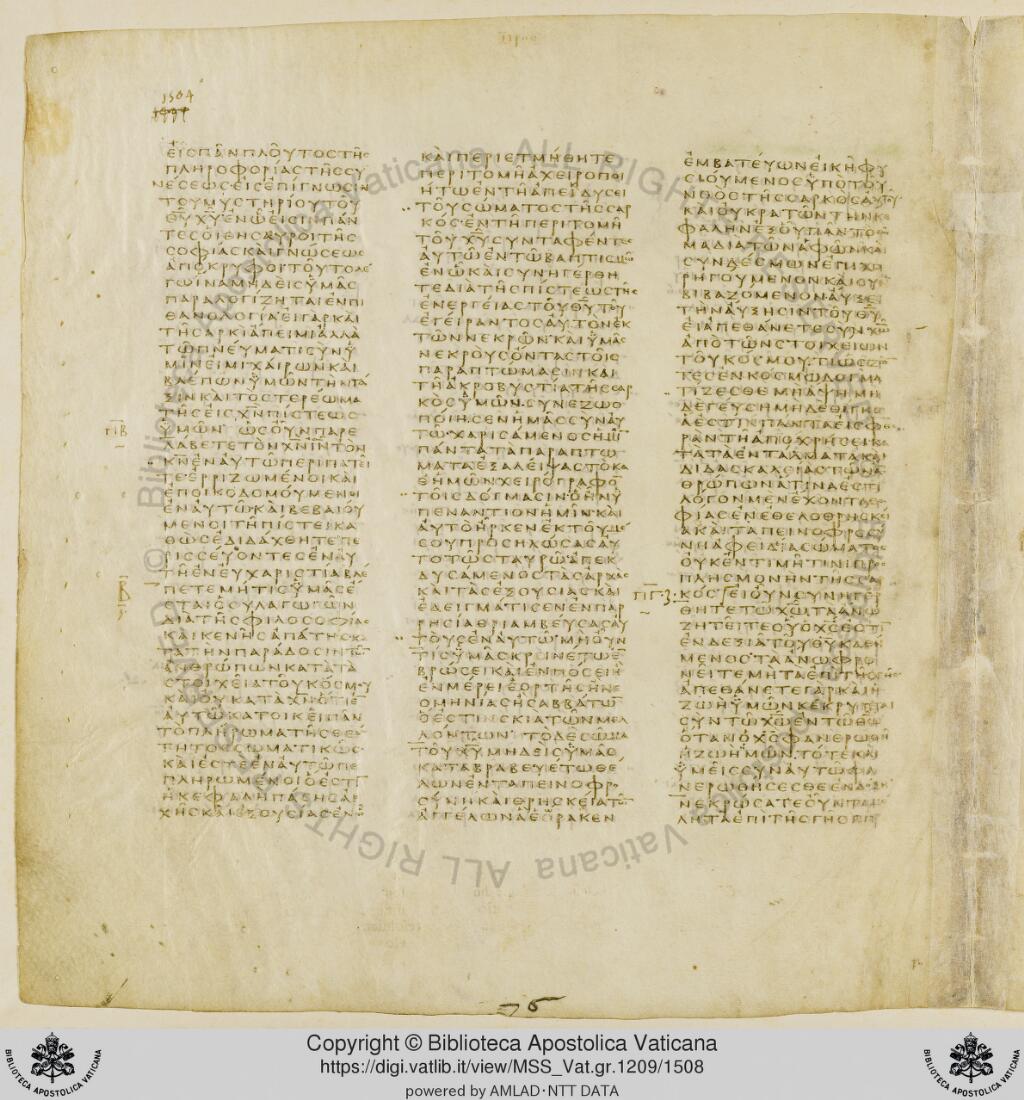 1504
ΕΙΣΠΑΝΠΛΟΥΤΟΣΤΗΣ
ΠΛΗΡΟΦΟΡΙΑΣΤΗΣΣΥ
ΝΕΣΕΩΣΕΙΣΕΠΙΓΝΩΣΙΝ
ΤΟΥΜΥΣΤΗΡΙΟΥΤΟΥ
ΘΥΧΥΕΝΩΕΙΣΙΝΠΑΝ
ΤΕΣΟΙΘΗΣΑΥΡΟΙΤΗΣ
ΣΟΦΙΑΣΚΑΙΓΝΩΣΕΩΣ
ΑΠΟΚΡΥΦΟΙΤΟΥΤΟΛΕ
ΓΩΙΝΑΜΗΔΕΙΣΫΜΑΣ
ΠΑΡΑΛΟΓΙΖΗΤΑΙΕΝΠΙ
ΘΑΝΟΛΟΓΙΑΕΙΓΑΡΚΑΙ
ΤΗΣΑΡΚΙΑΠΕΙΜΙΑΛΛΑ
ΤΩΠΝΕΥΜΑΤΙΣΥΝΫ
ΜΙΝΕΙΜΙΧΑΙΡΩΝΚΑΙ
ΒΛΕΠΩΝΫΜΩΝΤΗΝΤΑ
ΞΙΝΚΑΙΤΟΣΤΕΡΕΩΜΑ
ΤΗΣΕΙΣΧΝΠΙΣΤΕΩΣ
ΫΜΩΝ ΩΣΟΥΝΠΑΡΕ
ΛΑΒΕΤΕΤΟΝΧΝΙΝΤΟΝ
ΚΝΕΝΑΥΤΩΠΕΡΙΠΑΤΕΙ
ΤΕΕΡΡΙΖΩΜΕΝΟΙΚΑΙ
ΕΠΟΙΚΟΔΟΜΟΥΜΕΝΟΙ
ΕΝΑΥΤΩΚΑΙΒΕΒΑΙΟΥ
ΜΕΝΟΙΤΗΠΙΣΤΕΙΚΑ
ΘΩΣΕΔΙΔΑΧΘΗΤΕΠΕ
ΡΙΣΣΕΥΟΝΤΕΣΕΝΑΥ
ΤΗΕΝΕΥΧΑΡΙΣΤΙΑΒΛΕ
ΠΕΤΕΜΗΤΙΣΫΜΑΣΕ
ΣΤΑΙΟΣΥΛΑΓΩΓΩΝ
ΔΙΑΤΗΣΦΙΛΟΣΟΦΙΑΣ
ΚΑΙΚΕΝΗΣΑΠΑΤΗΣΚΑ
ΤΑΤΗΝΠΑΡΑΔΟΣΙΝΤΩΝ
ΑΝΘΡΩΠΩΝΚΑΤΑΤΑ
ΣΤΟΙΧΕΙΑΤΟΥΚΟΣΜΟΥ
ΚΑΙΟΥΚΑΤΑΧΝΟΤΙΕ
ΑΥΤΩΚΑΤΟΙΚΕΙΠΑΝ
ΤΟΠΛΗΡΩΜΑΤΗΣΘΕΟ
ΤΗΤΟΣΣΩΜΑΤΙΚΩΣ
ΚΑΙΕΣΤΕΕΝΑΥΤΩΠΕ
ΠΛΗΡΩΜΕΝΟΙΟΕΣΤΙ
ΗΚΕΦΑΛΗΠΑΣΗΣΑΡ
ΧΗΣΚΑΙΕΞΟΥΣΙΑΣΕΝΩ
ΚΑΙΠΕΡΙΕΤΜΗΘΗΤΕ
ΠΕΡΙΤΟΜΗΑΧΕΙΡΟΠΟΙ
ΗΤΩΕΝΤΗΑΠΕΚΔΥΣΕΙ
ΤΟΥΣΩΜΑΤΟΣΤΗΣΣΑΡ
ΚΟΣΕΝΤΗΠΕΡΙΤΟΜΗ
ΤΟΥΧΥΣΥΝΤΑΦΕΝΤΕΣ
ΑΥΤΩΕΝΤΩΒΑΠΤΙΣΜΩ
ΕΝΩΚΑΙΣΥΝΗΓΕΡΘΗ
ΤΕΔΙΑΤΗΣΠΙΣΤΕΩΣΤΗΣ
ΕΝΕΡΓΕΙΑΣΤΟΥΘΥΤΟΥ
ΕΓΕΙΡΑΝΤΟΣΑΥΤΟΝΕΚ
ΤΩΝΝΕΚΡΩΝΚΑΙΫΜΑΣ
ΝΕΚΡΟΥΣΟΝΤΑΣΤΟΙΣ
ΠΑΡΑΠΤΩΜΑΣΙΝΚΑΙ
ΤΗΑΚΡΟΒΥΣΤΙΑΤΗΣΣΑΡ
ΚΟΣΫΜΩΝΣΥΝΕΖΩΟ
ΠΟΙΗΣΕΝΗΜΑΣΣΥΝΑΥ
ΤΩΧΑΡΙΣΑΜΕΝΟΣΗΜΙ
ΠΑΝΤΑΤΑΠΑΡΑΠΤΩ
ΜΑΤΑΕΞΑΛΕΙΨΑΣΤΟΚΑ
ΘΗΜΩΝΧΕΙΡΟΓΡΑΦΟ
ΤΟΙΣΔΟΓΜΑΣΙΝΟΗΝΫ
ΠΕΝΑΝΤΙΟΝΗΜΙΝΚΑΙ
ΑΥΤΟΗΡΚΕΝΕΚΤΟΥΜΕ
ΣΟΥΠΡΟΣΗΛΩΣΑΣΑΥ
ΤΟΤΩΣΤΑΥΡΩΑΠΕΚ
ΔΥΣΑΜΕΝΟΣΤΑΣΑΡΧΑΣ
ΚΑΙΤΑΣΕΞΟΥΣΙΑΣΚΑΙ
ΕΔΕΙΓΜΑΤΙΣΕΝΕΝΠΑΡ
ΡΗΣΙΑΘΡΙΑΜΒΕΥΣΑΣΑΥ
ΤΟΥΣΕΝΑΥΤΩΜΗΟΥΝ
ΤΙΣΫΜΑΣΚΡΙΝΕΤΩΕ
ΒΡΩΣΕΙΚΑΙΕΝΠΟΣΕΙΗ
ΕΝΜΕΡΕΙΕΟΡΤΗΣΗΝΕ
ΟΜΗΝΙΑΣΗΣΑΒΒΑΤΩ
ΟΕΣΤΙΝΣΚΙΑΤΩΝΜΕΛ
ΛΟΝΤΩΝΤΟΔΕΣΩΜΑ
ΤΟΥΧΥΜΗΔΕΙΣΫΜΑΣ
ΚΑΤΑΒΡΑΒΕΥΕΤΩΘΕ
ΛΩΝΕΝΤΑΠΕΙΝΟΦΡΟ
ΣΥΝΗΚΑΙΘΡΗΣΚΕΙΑΤΩ
ΑΓΓΕΛΩΝΑΕΟΡΑΚΕΝ
ΕΜΒΑΤΕΥΩΝΕΙΚΗΦΥ
ΣΙΟΥΜΕΝΟΣΫΠΟΤΟΥ
ΝΟΟΣΤΗΣΣΑΡΚΟΣΑΥΤΟΥ
ΚΑΙΟΥΚΡΑΤΩΝΤΗΝΚΕ
ΦΑΛΗΝΕΞΟΥΠΑΝΤΟΣΩ
ΜΑΔΙΑΤΩΝΑΦΩΝΚΑΙ
ΣΥΝΔΕΣΜΩΝΕΠΙΧΟ
ΡΗΓΟΥΜΕΝΟΝΚΑΙΣΥ
ΒΙΒΑΖΟΜΕΝΟΝΑΥΞΕΙ
ΤΗΝΑΥΞΗΣΙΝΤΟΥΘΥ
ΕΙΑΠΕΘΑΝΕΤΕΣΥΝΧΩ
ΑΠΟΤΩΝΣΤΟΙΧΕΙΩΝ
ΤΟΥΚΟΣΜΟΥΤΙΩΣΖΩ
ΤΕΣΕΝΚΟΣΜΩΔΟΓΜΑ
ΤΙΖΕΣΘΕΜΗΑΨΗΜΗ
ΔΕΓΕΥΣΗΜΗΔΕΘΙΓΗΣ
ΑΕΣΤΙΠΑΝΤΑΕΙΣΦΘΟ
ΡΑΝΤΗΑΠΟΧΡΗΣΕΙΚΑ
ΤΑΤΑΕΝΤΑΛΜΑΤΑΚΑΙ
ΔΙΔΑΣΚΑΛΙΑΣΤΩΝΑ
ΘΡΩΠΩΝΑΤΙΝΑΕΣΤΙ
ΛΟΓΟΝΜΕΝΕΧΟΝΤΑΣΟ
ΦΙΑΣΕΝΕΘΕΛΟΘΡΗΣΚΙ
ΑΚΑΙΤΑΠΕΙΝΟΦΡΟΣΥ
ΝΗΑΦΕΙΔΙΑΣΩΜΑΤΟΣ
ΟΥΚΕΝΤΙΜΗΤΙΝΙΠΡΟΣ
ΠΛΗΣΜΟΝΗΝΤΗΣΣΑΡ
ΚΟΣ ΕΙΟΥΝΣΥΝΗΓΕΡ
ΘΗΤΕΤΩΧΩΤΑΑΝΩ
ΖΗΤΕΙΤΕΟΥΟΧΣΕΣΤΙ
ΕΝΔΕΞΙΑΤΟΥΘΥΚΑΘΗ
ΜΕΝΟΣΤΑΑΝΩΦΡΟ
ΝΕΙΤΕΜΗΤΑΕΠΙΤΗΣΓΗΣ
ΑΠΕΘΑΝΕΤΕΓΑΡΚΑΙΗ
ΖΩΗΫΜΩΝΚΕΚΡΥΠΤΑΙ
ΣΥΝΤΩΧΩΕΝΤΩΘΩ
ΟΤΑΝΟΧΣΦΑΝΕΡΩΘΗ
ΗΖΩΗΗΜΩΝΤΟΤΕΚΑΙ
ΫΜΕΙΣΣΥΝΑΥΤΩΦΑ
ΝΕΡΩΘΗΣΕΣΘΕΕΝΔΟΞΗ
ΝΕΚΡΩΣΑΤΕΟΥΝΤΑΜΕ
ΛΗΤΑΕΠΙΤΗΣΓΗΣΠΟΡ
Copyright © Biblioteca Apostolica Vaticana
https://digi.vatlib.it/view/MSS_Vat.gr.1209/1508
powered by AMLAD·NTT DATA